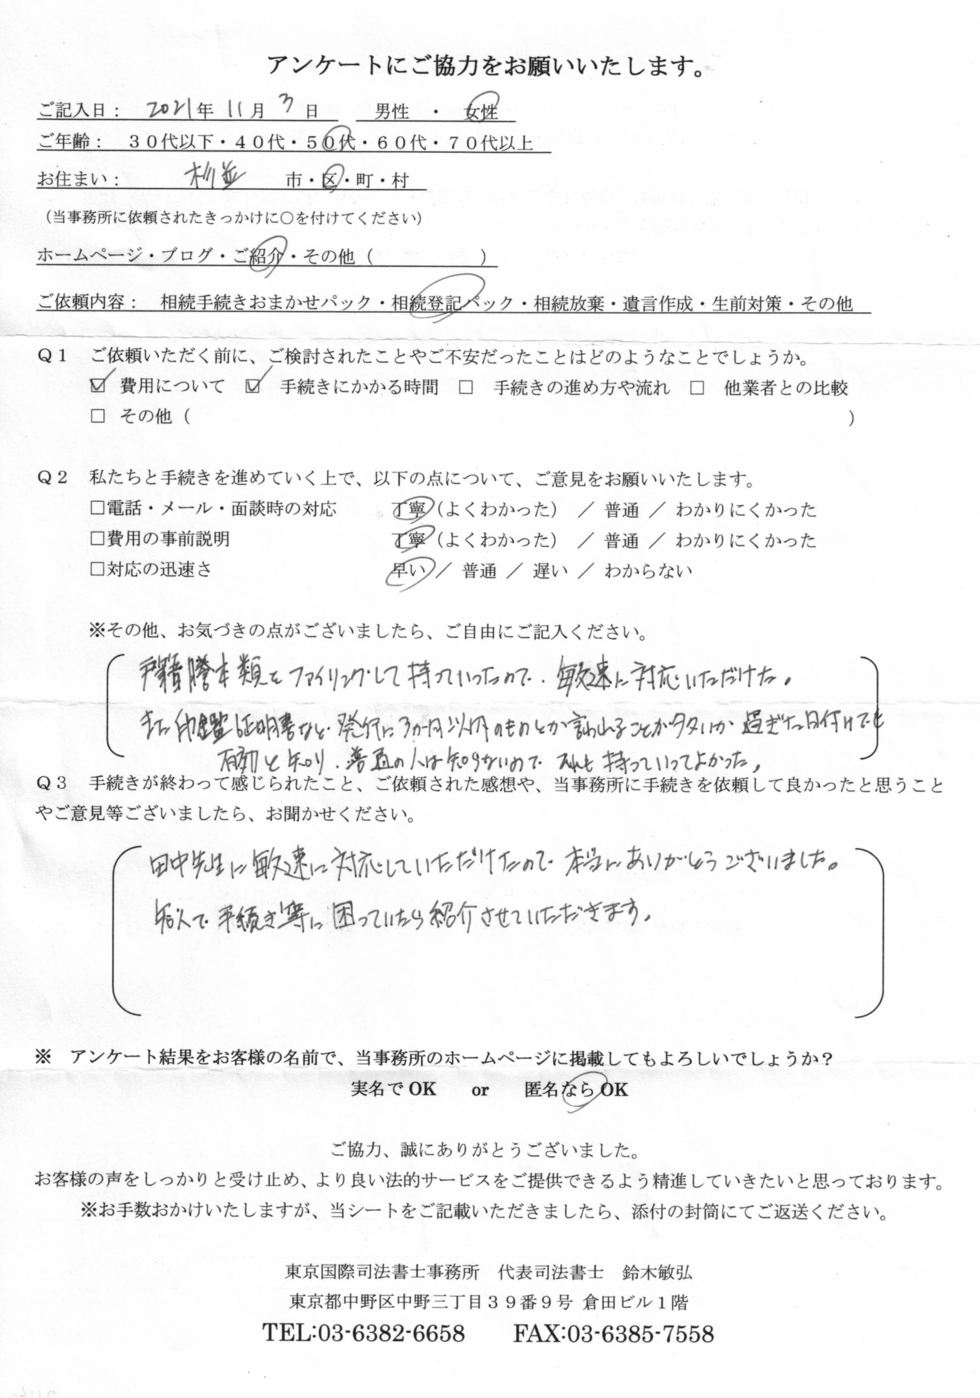 アンケートにご協力をお願いいたします。
ご記入日： 2021年 11月 3日 男性 ・ 女性
ご年齢： 30代以下・40代・50代・60代・70代以上
お住まい： 杉並 市・区・町・村
（当事務所に依頼されたきっかけに○を付けてください）
ホームページ・ブログ・ご紹介・その他（ ）
ご依頼内容： 相続手続きおまかせパック・相続登記パック・相続放棄・遺言作成・生前対策・その他
Q1 ご依頼いただく前に、ご検討されたことやご不安だったことはどのようなことでしょうか。
☑ 費用について ☑ 手続きにかかる時間 □ 手続きの進め方や流れ □ 他業者との比較
□ その他（ ）
Q2 私たちと手続きを進めていく上で、以下の点について、ご意見をお願いいたします。
□電話・メール・面談時の対応 丁寧（よくわかった） ／ 普通 ／ わかりにくかった
□費用の事前説明 丁寧（よくわかった） ／ 普通 ／ わかりにくかった
□対応の迅速さ 早い／ 普通 ／ 遅い ／ わからない
※その他、お気づきの点がございましたら、ご自由にご記入ください。
戸籍謄本類をファイリングして持っていったので、敏速に対応いただけた。
また印鑑証明書など、発行に3か月以内のものとか言われることが多いが 過ぎた日付けでも
有効と知り、普通の人は知らないので 持っていってよかった。
Q3 手続きが終わって感じられたこと、ご依頼された感想や、当事務所に手続きを依頼して良かったと思うこと
やご意見等ございましたら、お聞かせください。
田中先生に敏速に対応していただけたので 本当にありがとうございました。
知人で手続き等に困っていたら紹介させていただきます。
※ アンケート結果をお客様の名前で、当事務所のホームページに掲載してもよろしいでしょうか？
実名で OK or 匿名なら OK
ご協力、誠にありがとうございました。
お客様の声をしっかりと受け止め、より良い法的サービスをご提供できるよう精進していきたいと思っております。
※お手数おかけいたしますが、当シートをご記載いただきましたら、添付の封筒にてご返送ください。
東京国際司法書士事務所 代表司法書士 鈴木敏弘
東京都中野区中野三丁目39番9号 倉田ビル1階
TEL:03-6382-6658 FAX:03-6385-7558